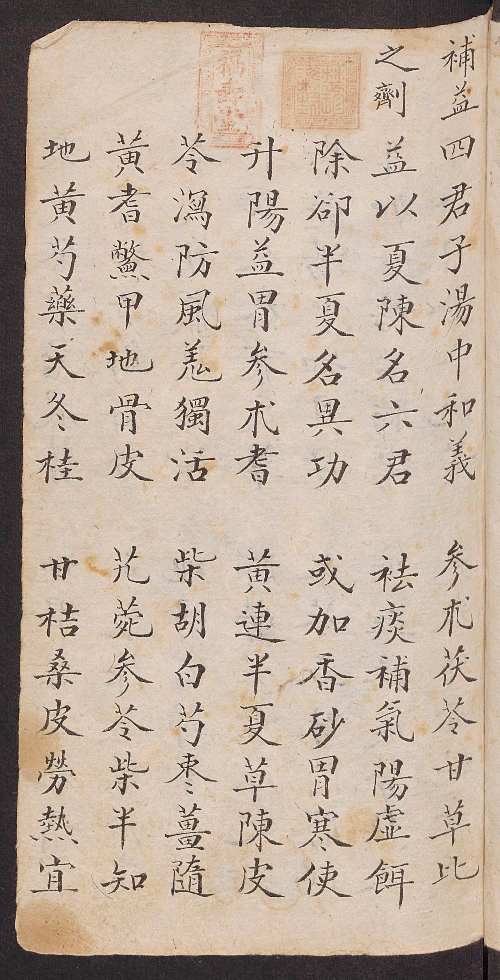 補益四君子湯中和義 參朮茯苓甘草比
之劑 益以夏陳名六君 祛痰補氣陽虛餌
除卻半夏名異功 或加香砂胃寒使
升陽益胃參朮耆 黃連半夏草陳皮
苓瀉防風羗獨活 柴胡白芍棗薑隨
黃耆鱉甲地骨皮 艽菀參苓柴半知
地黃芍藥天冬桂 甘桔桑皮勞熱宜